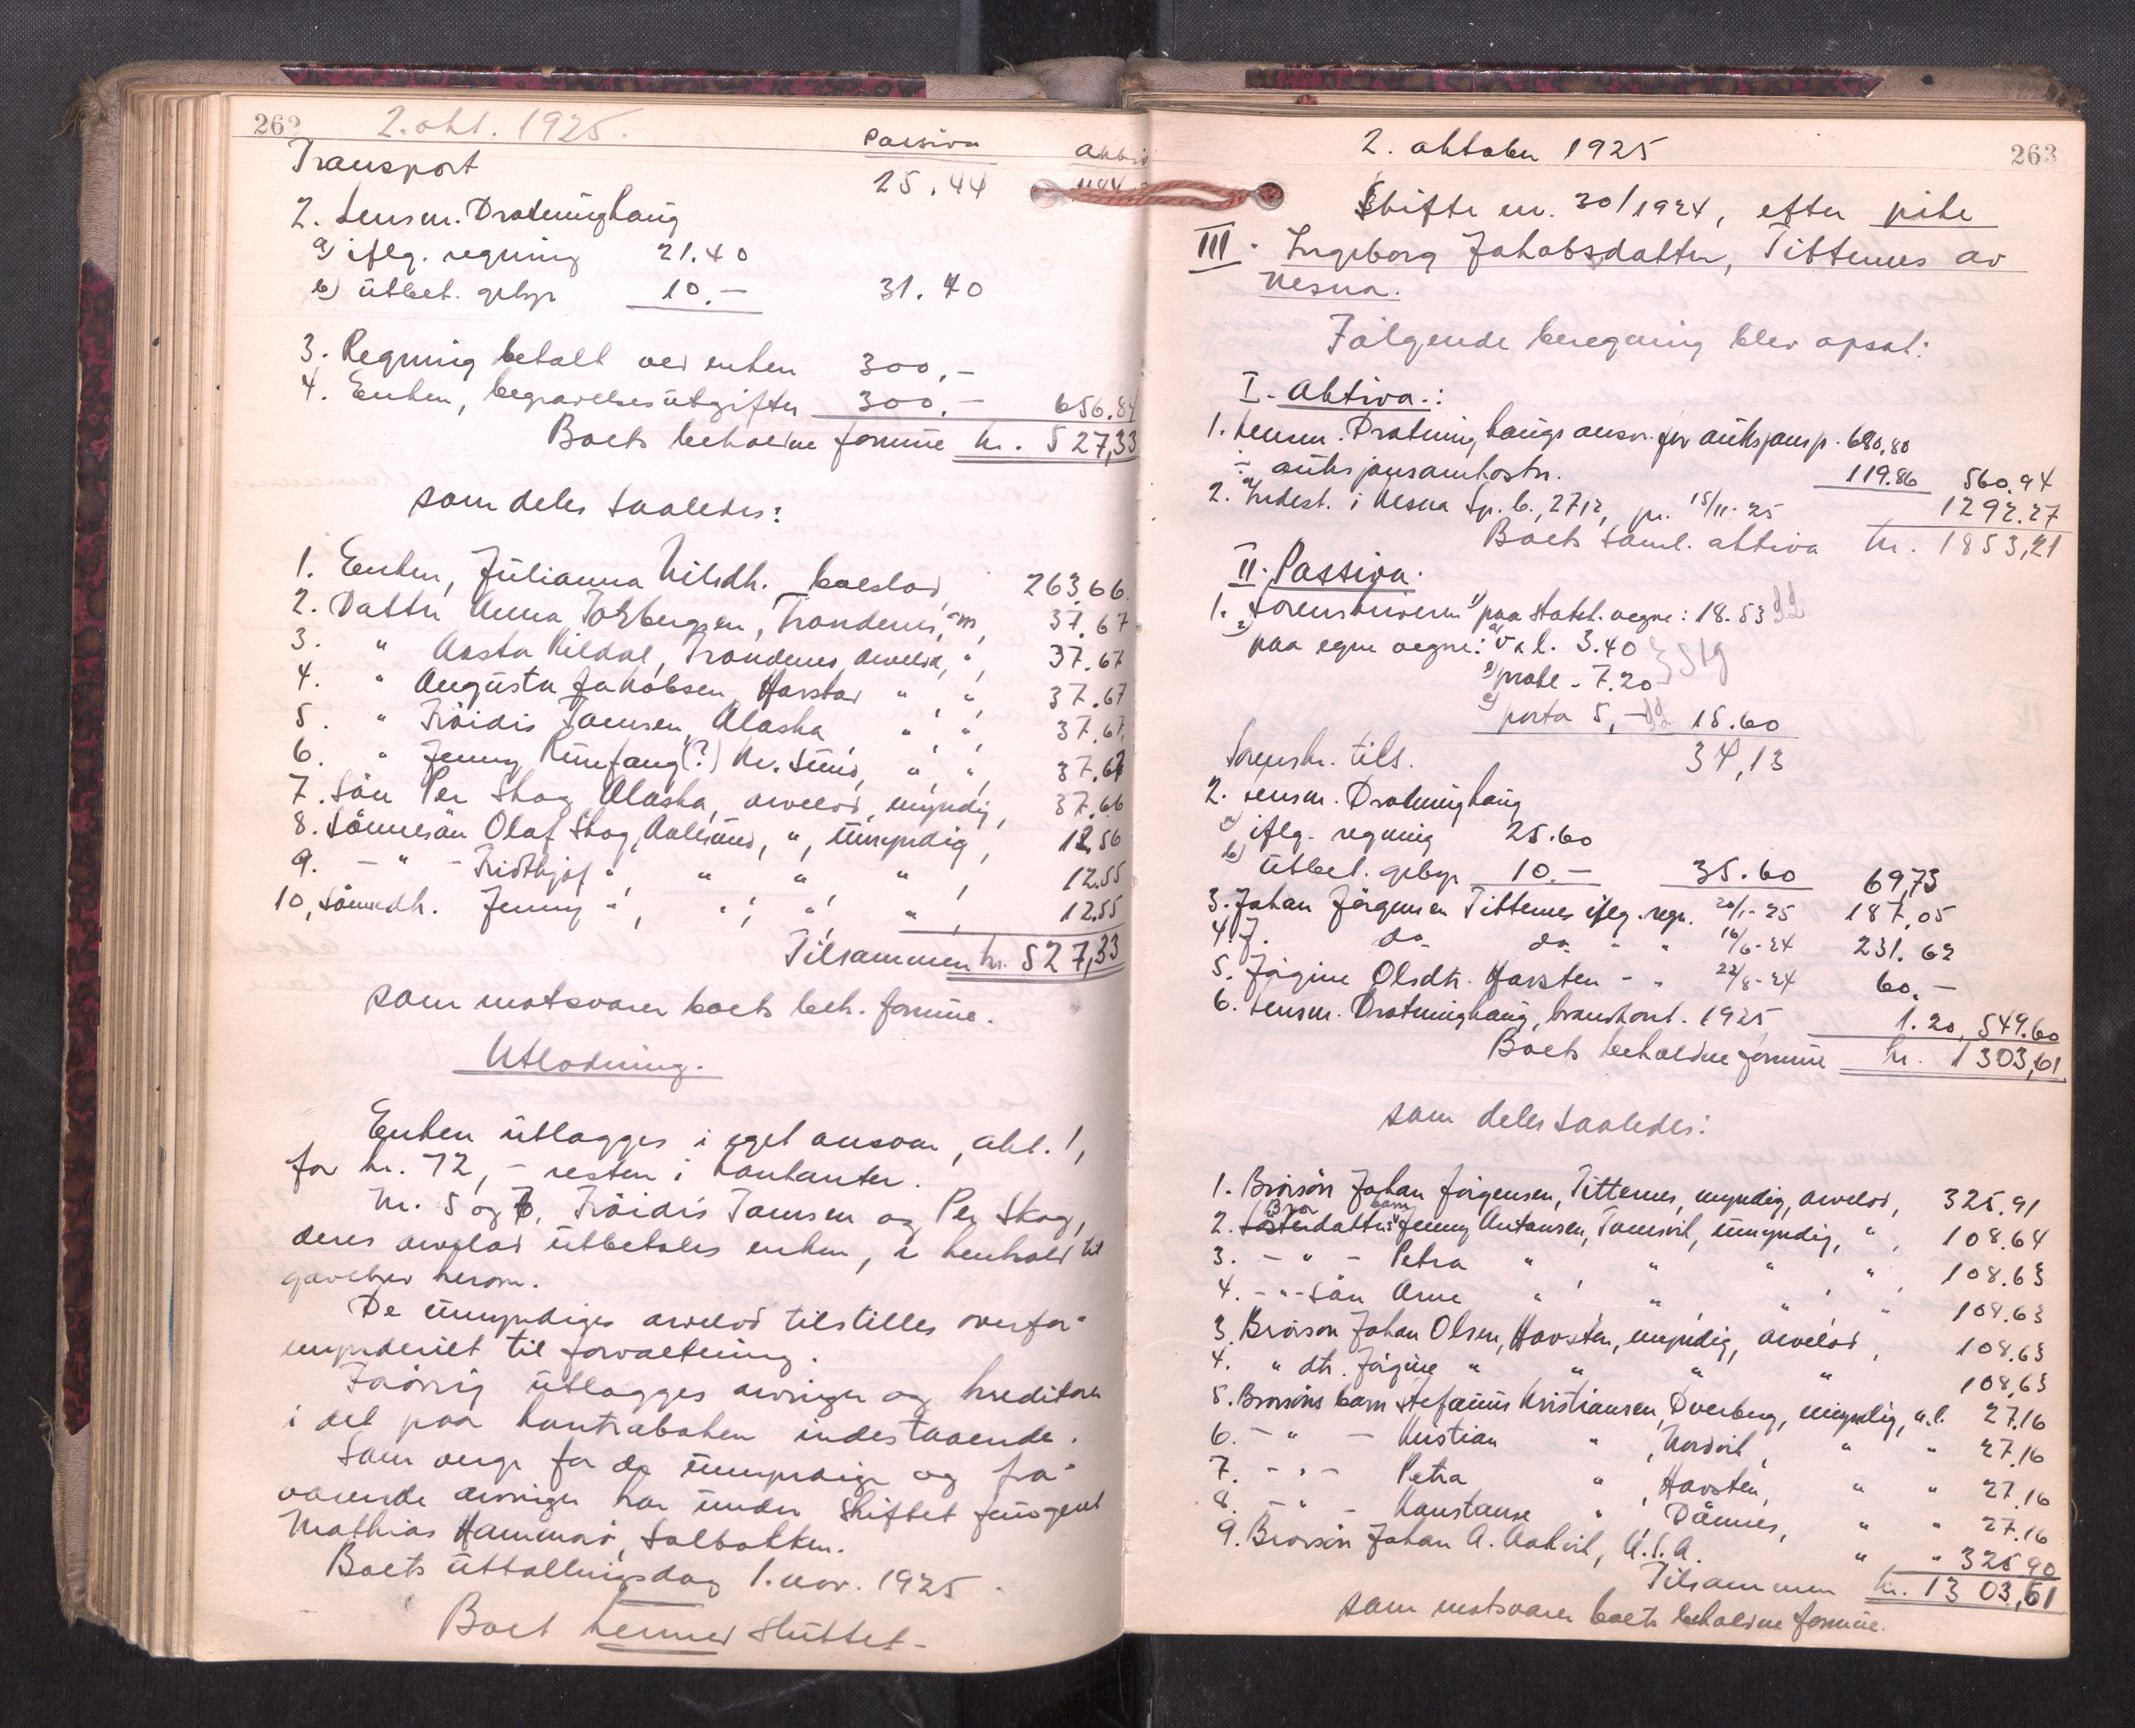 262 2. okt. 1925.
Passiva Aktiva
Transport 25.44
2. Lensm. Dronninghaug
a) iflg. regning 21.40
b) utbet. gebyr 10.– 31.40
3. Regning betalt ved enken 300,–
4. Enken, begravelsesutgifter 300.– 656.84
Boets beholdne formue kr. 527,33
som deles saaledes:
1. Enken, Julianna Nilsdtr. boeslod, 263.66
2. Datter Anna Torbergsen, Trondenes, 37.67
3. " Aasta Kildal, Trondenes, arvelod, ", 37.67
4. " Augusta Jakobsen, Harstad " ", 37.67
5. " Fröidis Jamsen, Alaska " ", 37.67
6. " Jenny Runfang (?) Kr. Sund, " ", 37.67
7. Sön Per Skog, Alaska, arvelod, myndig, 37.66
8. Sönnesön Olaf Skog, Aalesund, ", umyndig, 12.56
9. – " – Fridthjof ", " " ", 12.55
10. Sönnedtr. Jenny ", " " ", 12.55
Tilsammen kr. 527,33
som motsvarer boets beh. formue.
Utlodning.
Enken utlægges i eget ansvar, akt. 1,
for kr. 72,– resten i kontanter.
Nr. 5 og 7, Fröidis Jamsen og Per Skog,
deres arvelod utbetales enken, i henhold til
gavebrev herom.
De umyndiges arvelod tilstilles overfor-
mynderiet til forvaltning.
Forövrig utlægges arvinger og kreditorer
i det paa kontraboken indestaaende.
Som verge for de umyndige og fra-
værende arvinger har under skiftet fungert
Mathias Hammerö, Solbakken.
Boets uttallingsdag 1. nov. 1925.
Boet hermed sluttet.
2. oktober 1925 263
Skifte nr. 30/1924, efter pike
III. Ingeborg Jakobsdatter, Titternes av
Nesna.
Fölgende beregning blev opsat:
I. Aktiva:
1. Lensm. Dronninghaugs ansv. for auksjonsp. 680,80
÷ auksjonsomkostn. 119.86 560.94
2. Indest. i Nesna Sp.b., 2712, pr. 15/11-25 1292.27
Boets saml. aktiva kr. 1853,21
II. Passiva.
1. Sorenskriveren 1) paa statet. vegne: 18.53
2) paa egne vegne: a) v.k.l. 3.40
b) protok. 7.20
c) porto 5,– 15.60
Sorenskr. tils. 34,13
2. Lensm. Dronninghaug
a) iflg. regning 25.60
b) utbet. gebyr 10.– 35.60 69,73
3. Johan Jörgensen Titternes iflg. regn. 20/1-25 187.05
4. J. do do " " 16/6-24 231.62
5. Jörgine Olsdtr. Havsten – " 22/8-24 60.–
6. Lensm. Dronninghaug, brandkont. 1925 1.20 549.60
Boets beholdne formue kr. 1303,61
som deles saaledes:
1. Brorsön Johan Jörgensen, Titternes, myndig, arvelod, 325.91
2. Söster Bror datters barn Jenny Antonsen, Tomsvik, umyndig, ", 108.64
3. – " – Petra " " " ", 108.63
4. – " – Sön Arne " " " " 108.63
3. Brorsön Johan Olsen, Havsten, myndig, arvelod, 108.63
4. " dtr. Jörgine " " " " 108.63
5. Brorsöns barn Stefanus Kristiansen, Dverberg, myndig, a.l. 27.16
6. – " – Kristian " , Nordvik, " " 27.16
7. – " – Petra " , Havsten, " " 27.16
8. – " – Konstanse " , Dönnes, " " 27.16
9. Brorsön Johan A. Aakvik, U.S.A. " " 325.90
Tilsammen kr. 1303,61
som motsvarer boets beholdne formue.